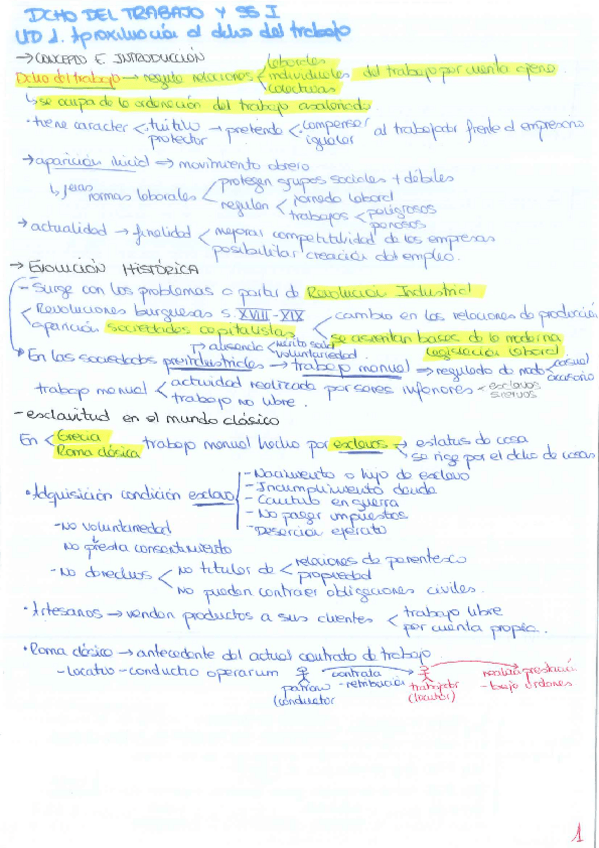 DCHO DEL TRABAJO Y SS I
UD 1. Aproximación al dcho del trabajo
→ CONCEPTO E INTRODUCCIÓN
laborales
Dcho del trabajo → regula relaciones < individuales del trabajo por cuenta ajena
colectivas
↳ se ocupa de la ordenación del trabajo asalariado
· tiene caracter < tuitivo → pretende < compensar al trabajador frente al empresario
protector igualar
→ aparición inicial → movimiento obrero
↳ normas laborales < protegen grupos sociales + débiles
regulan < jornada laboral
trabajos < peligrosos
penosos
→ actualidad → finalidad < mejorar competitividad de las empresas
posibilitar creación del empleo.
→ EVOLUCIÓN HISTÓRICA
- Surge con los problemas a partir de Revolución Industrial
< Revoluciones burguesas s. XVIII - XIX < cambio en las relaciones de producción
aparición sociedades capitalistas se asientan bases de la moderna
legislación laboral
↳ ausencia <
voluntariedad
En las sociedades preindustriales → trabajo manual → regulado de modo < casual
accesorio
trabajo manual < actividad realizada por seres inferiores < esclavos
siervos
trabajo no libre.
- esclavitud en el mundo clásico
En < Grecia trabajo manual hecho por esclavos → estatus de cosa
Roma clásica se rige por el dcho de cosas
· Adquisición condición esclavo
- Nacimiento o hijo de esclavo
- Incumplimiento deuda
- Cautivo en guerra
- No pagar impuestos
- Deserción ejército
- No voluntariedad
No presta consentimiento
- No derechos < no titular de < relaciones de parentesco
propiedad
no pueden contraer obligaciones civiles.
· Artesanos → venden productos a sus clientes < trabajo libre
por cuenta propia.
· Roma clásica → antecedente del actual contrato de trabajo
- locatio - conductio operarum
patrono
(conductor)
contrata
- retribución
trabajador
(locator)
realiza prestación
- bajo ordenes
1